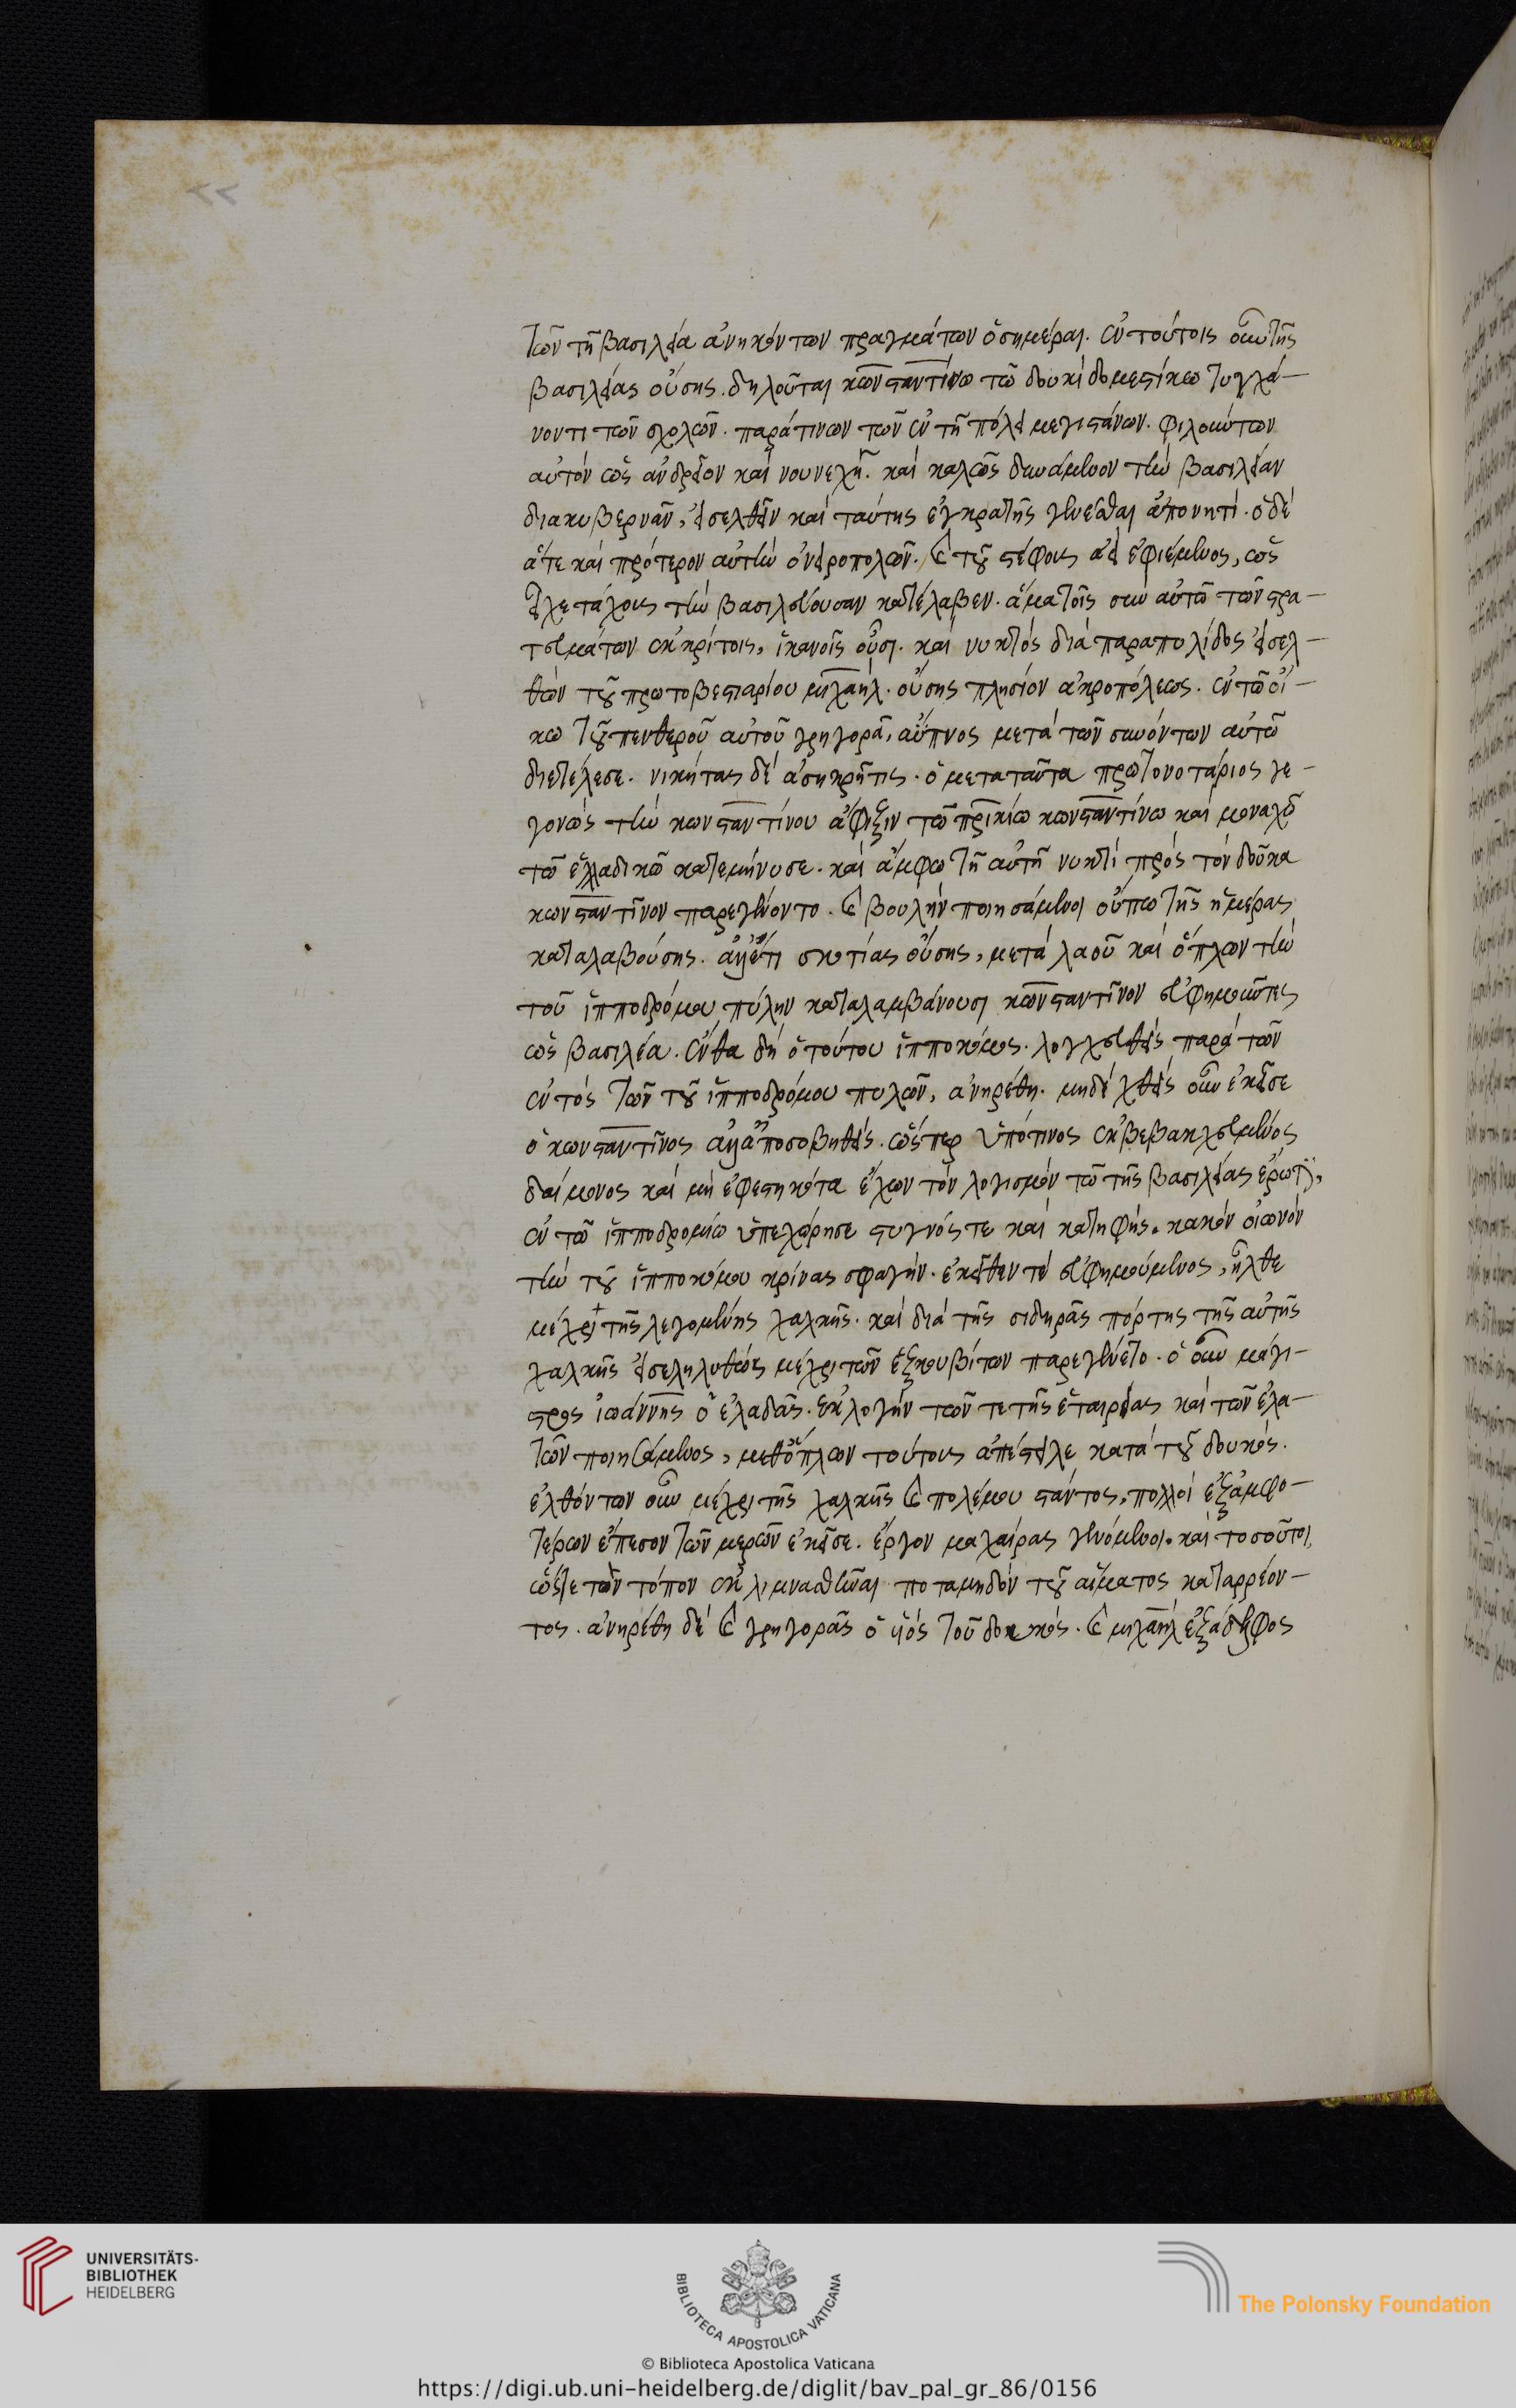 τῶν τῇ βασιλεία ἀνηκόντων πραγμάτων ὁσημέραι. ἐν τούτοις οὖν τῆς
βασιλείας οὔσης. δηλοῦται κωνσταντίνω τῶ δουκὶ δομεστίκω τυγχά-
νοντι τῶν σχολῶν. παρά τινων τῶν ἐν τῇ πόλει μεγιστάνων. φιλούντων
αὐτὸν ὡς ἀνδρεῖον καὶ νουνεχῆ. καὶ καλῶς δυνάμενον τὴν βασιλείαν
διακυβερνᾶν, εἰσελθεῖν καὶ ταύτης ἐγκρατῆς γενέσθαι ἀπονητί. ὁ δὲ
ἅτε καὶ πρότερον αὐτὴν ὀνειροπολῶν. καὶ τοῦ στέφους ἀεὶ ἐφιέμενος, ὡς
εἶχε τάχους τὴν βασιλεύουσαν κατέλαβεν. ἅμα τοῖς σὺν αὐτῶ τῶν στρα-
τευμάτων ἐκκρίτοις, ἱκανοῖς οὖσι. καὶ νυκτὸς διὰ παραπυλίδος εἰσελ-
θὼν τοῦ πρωτοβεστιαρίου μιχαὴλ. οὔσης πλησίον ἀκροπόλεως. ἐν τῶ οἴ-
κω τοῦ πενθεροῦ αὐτοῦ γρηγορᾶ, ἄϋπνος μετὰ τῶν συνόντων αὐτῶ
διετέλεσε. νικήτας δὲ ἀσηκρῆτις. ὁ μεταταῦτα πρωτονοτάριος γε-
γονὼς τὴν κωνσταντίνου ἄφιξιν τῶ πρικίω κωνσταντίνω καὶ μοναχῶ
τῶ ἑλλαδικῶ κατεμήνυσε. καὶ ἄμφω τῇ αὐτῇ νυκτὶ πρὸς τὸν δοῦκα
κωνσταντῖνον παρεγένοντο. καὶ βουλὴν ποιησάμενοι οὔπω τῆς ἡμέρας
καταλαβούσης. ἀλλ' ἔτι σκοτίας οὔσης, μετὰ λαοῦ καὶ ὅπλων τὴν
τοῦ ἱπποδρόμου πύλην καταλαμβάνουσι κωνσταντῖνον εὐφημοῦντες
ὡς βασιλέα. ἔνθα δὴ ὁ τούτου ἱπποκόμος. λογχευθεὶς παρὰ τῶν
ἐντὸς τῶν τοῦ ἱπποδρόμου πυλῶν, ἀνηρέθη. μὴ δεχθεὶς οὖν ἐκεῖσε
ὁ κωνσταντῖνος ἀλλ' ἀποσοβηθείς. ὥσπερ ὑπό τινος ἐκβεβακχευμένος
δαίμονος καὶ μὴ ἐφεστηκότα ἔχων τὸν λογισμὸν τῶ τῆς βασιλείας ἔρωτι,
ἐν τῶ ἱπποδρομίω ὑπεχώρησε στυγνός τε καὶ κατηφής. κακὸν οἰωνὸν
τὴν τοῦ ἱπποκόμου κρίνας σφαγήν. ἐκεῖθεν τὲ εὐφημούμενος, ἦλθε
μέχρι τῆς λεγομένης χαλκῆς. καὶ διὰ τῆς σιδηρᾶς πόρτης τῆς αὐτῆς
χαλκῆς εἰσεληλυθὼς μέχρι τῶν ἐξκουβίτων παρεγένετο. ὁ οὖν μάγι-
στρος ἰωάννης ὁ ἐλαδᾶς. ἐκλογὴν τῶν τε τῆς ἑταιρείας καὶ τῶν ἐλα-
τῶν ποιησάμενος, μεθ' ὅπλων τούτους ἀπέστειλε κατὰ τοῦ δουκός.
ἐλθόντων οὖν μέχρι τῆς χαλκῆς καὶ πολέμου στάντος, πολλοὶ ἐξ ἀμφο-
τέρων ἔπεσον τῶν μερῶν ἐκεῖσε. ἔργον μαχαίρας γενόμενοι. καὶ τοσοῦτοι,
ὥστε τὸν τόπον ἐκλιμνασθῆναι ποταμηδὸν τοῦ αἵματος καταρρέον-
τος. ἀνηρέθη δὲ καὶ γρηγορᾶς ὁ υἱὸς τοῦ δουκός. καὶ μιχαὴλ ἐξάδελφος
UNIVERSITÄTS-
BIBLIOTHEK
HEIDELBERG
BIBLIOTECA APOSTOLICA VATICANA
The Polonsky Foundation
© Biblioteca Apostolica Vaticana
https://digi.ub.uni-heidelberg.de/diglit/bav_pal_gr_86/0156